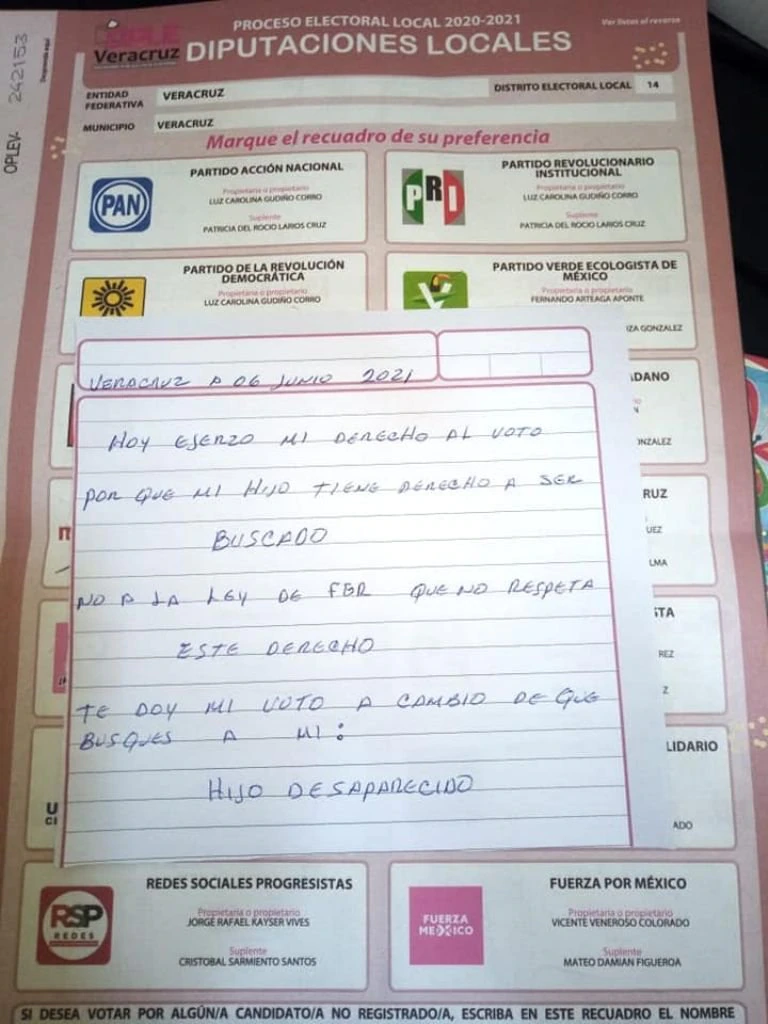 OPLEV- 242153
Desprenda aquí
OPLE
Veracruz
PROCESO ELECTORAL LOCAL 2020-2021
DIPUTACIONES LOCALES
Ver listas al reverso
ENTIDAD
FEDERATIVA
VERACRUZ
DISTRITO ELECTORAL LOCAL 14
MUNICIPIO VERACRUZ
Marque el recuadro de su preferencia
PAN
PARTIDO ACCIÓN NACIONAL
Propietaria o propietario
LUZ CAROLINA GUDIÑO CORRO
Suplente
PATRICIA DEL ROCIO LARIOS CRUZ
PRI
PARTIDO REVOLUCIONARIO
INSTITUCIONAL
Propietaria o propietario
LUZ CAROLINA GUDIÑO CORRO
Suplente
PATRICIA DEL ROCIO LARIOS CRUZ
PARTIDO DE LA REVOLUCIÓN
DEMOCRÁTICA
Propietaria o propietario
LUZ CAROLINA GUDIÑO CORRO
PARTIDO VERDE ECOLOGISTA DE
MÉXICO
Propietaria o propietario
FERNANDO ARTEAGA APONTE
IZA GONZALEZ
DADANO
NZALEZ
RUZ
UEZ
LMA
STA
REZ
Z
LIDARIO
ADO
VERACRUZ A 06 JUNIO 2021
HOY EJERZO MI DERECHO AL VOTO
POR QUE MI HIJO TIENE DERECHO A SER
BUSCADO
NO A LA LEY DE FGR QUE NO RESPETA
ESTE DERECHO
TE DOY MI VOTO A CAMBIO DE QUE
BUSQUES A MI:
HIJO DESAPARECIDO
RSP
REDES
REDES SOCIALES PROGRESISTAS
Propietaria o propietario
JORGE RAFAEL KAYSER VIVES
Suplente
CRISTOBAL SARMIENTO SANTOS
FUERZA
MEXICO
FUERZA POR MÉXICO
Propietaria o propietario
VICENTE VENEROSO COLORADO
Suplente
MATEO DAMIAN FIGUEROA
SI DESEA VOTAR POR ALGÚN/A CANDIDATO/A NO REGISTRADO/A, ESCRIBA EN ESTE RECUADRO EL NOMBRE